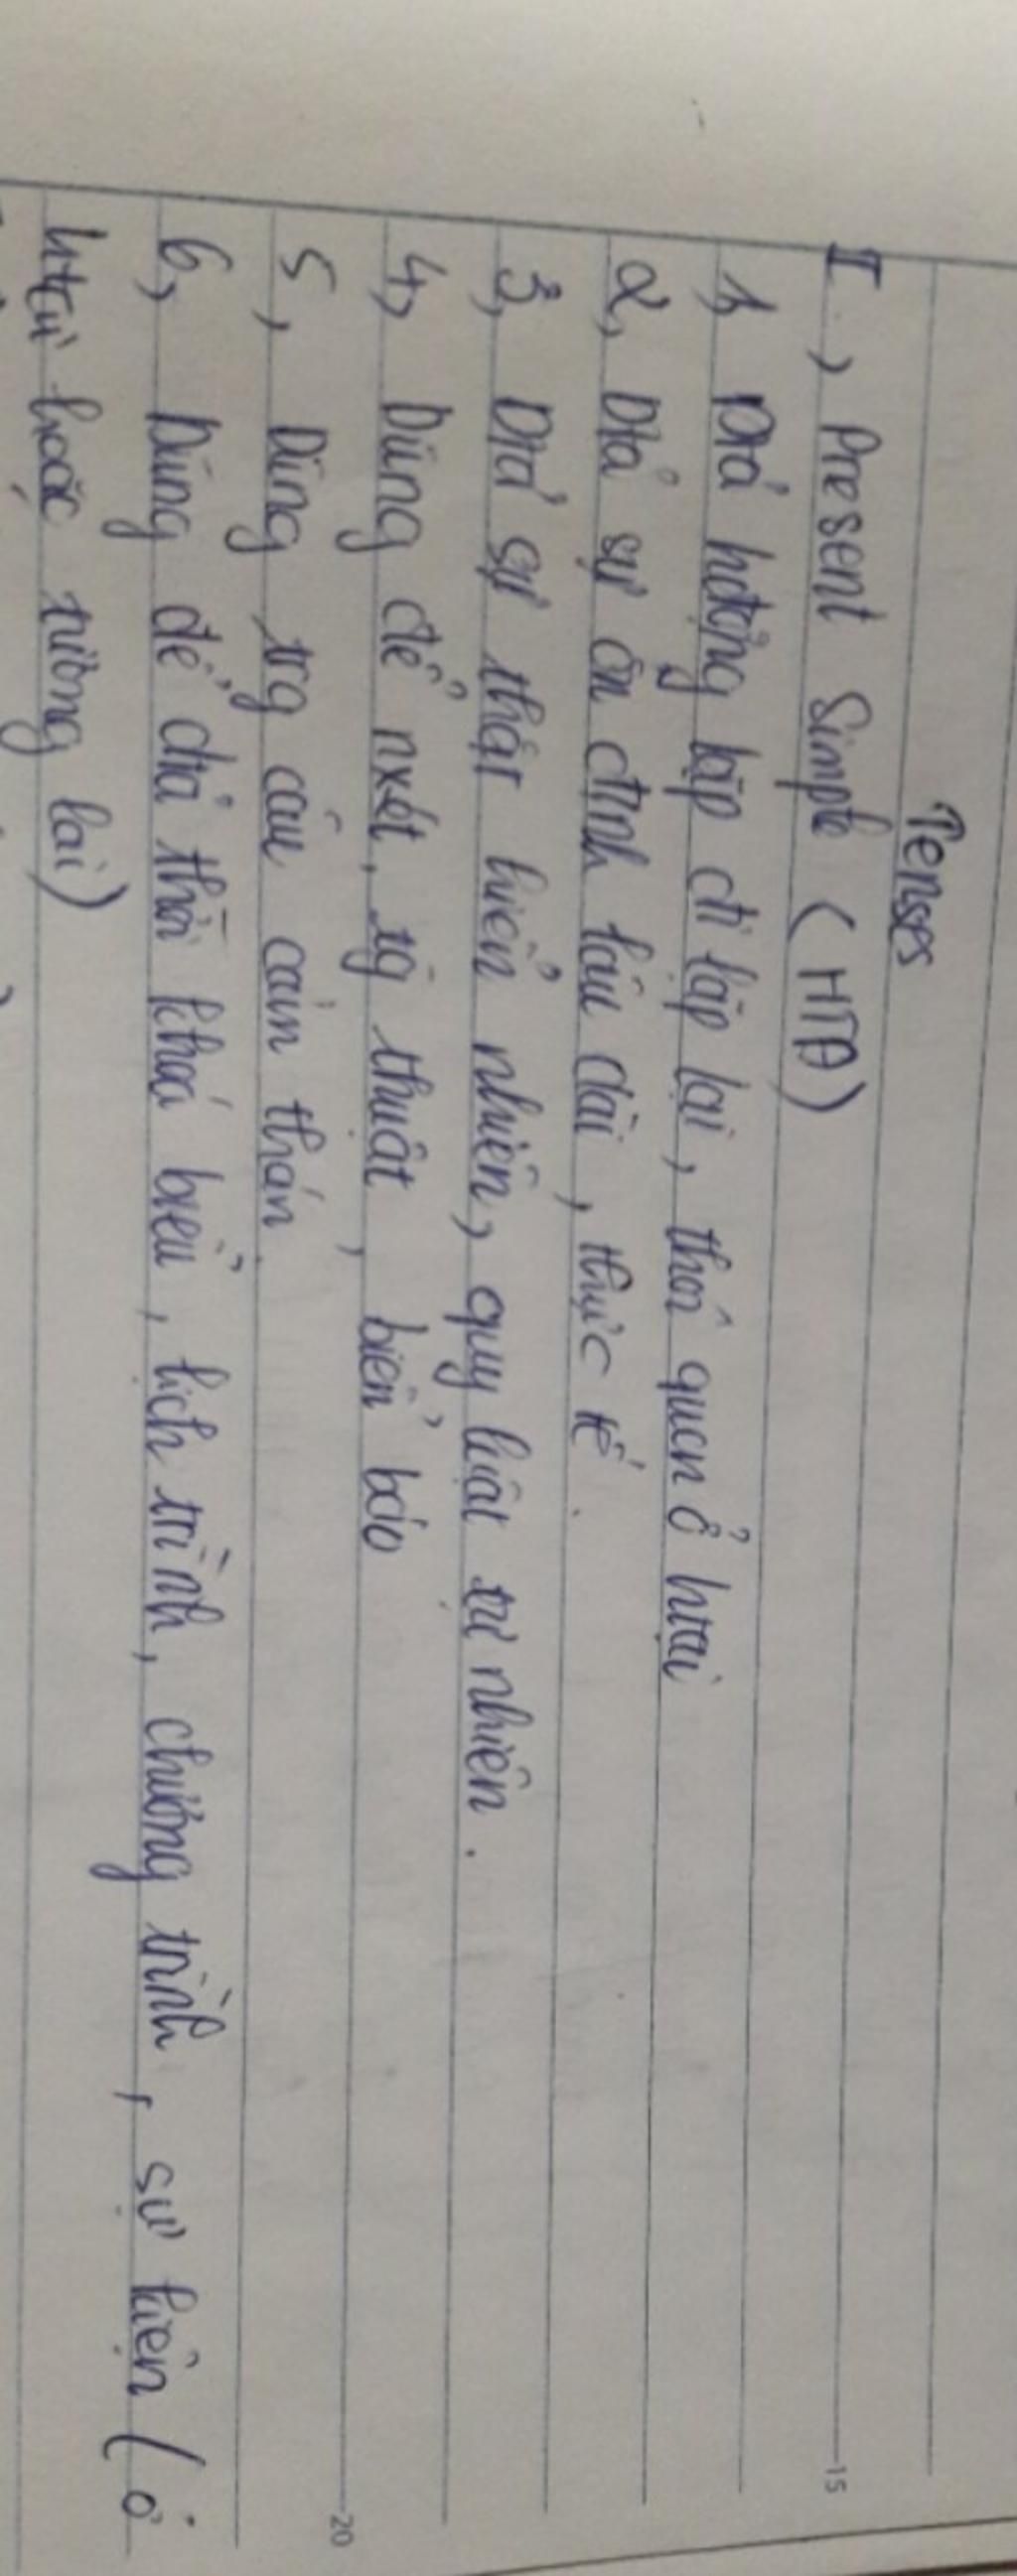 Tenses
I, Present Simple (HTĐ)
1, Dtả hđộng lặp đi lặp lại, thói quen ở htại
2, Dtả sự ổn định lâu dài, thực tế.
3, Dtả sự thật hiển nhiên, quy luật tự nhiên.
4, Dùng để nxét, tg thuật, biển báo
5, Dùng trg câu cảm thán.
6, Dùng để dtả thời khoá biểu, lịch trình, chương trình, sự kiện (ở
htại hoặc tương lai)
15
20